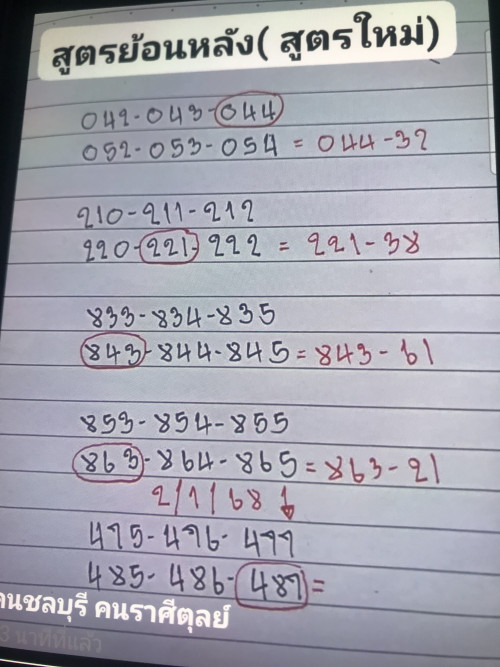 สูตรย้อนหลัง( สูตรใหม่)
042-043-044
052-053-054 = 044-32
210-211-212
220-221-222 = 221-38
833-834-835
843-844-845 = 843-61
853-854-855
863-864-865 = 863-21
2/1/68 ↓
475-476-477
485-486-487 =
คนชลบุรี คนราศีตุลย์
3 นาทีที่แล้ว